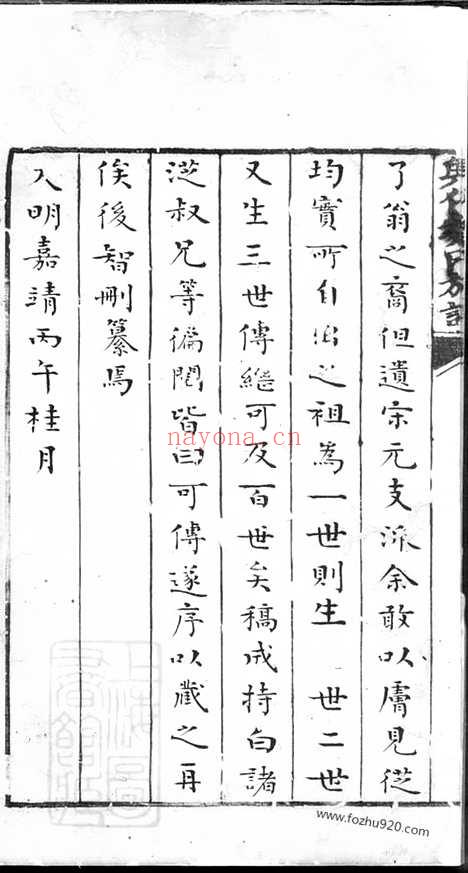 了翁之裔但遺宗元支派余敢以膚見從
均實所自出之祖為一世則生 世二世
又生三世傳繼可及百世矣稿成持白諸
從叔兄等徧閱皆曰可傳遂序以藏之再
俟後智刪纂焉
大明嘉靖丙午桂月
nayona.cn
www.fozhu920.com